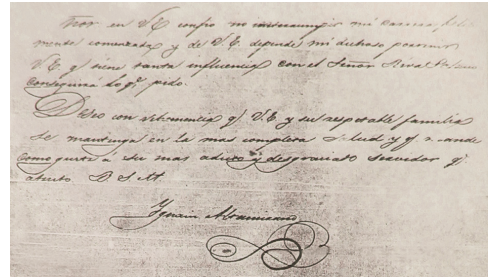 Por en V.E. confio no interrumpir mi carrera feliz
mente comenzada y de V.E. depende mi dichoso porvenir
V.E. q.e tiene tanta influencia con el Señor
conseguirá lo q.e pido.
Deseo con vehemencia q.e V.E. y su respetable familia
se mantenga en la mas completa salud y q.e mande
como guste a su mas adicto y desgraciado servidor q.e
atento B.S.M.
Ignacio